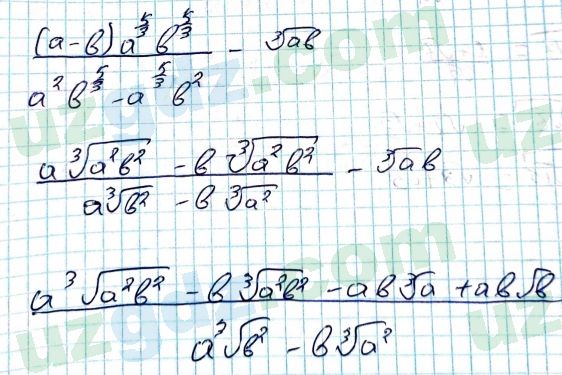 (a-b)a^{5/3} b^{5/3} / (a^2 b^{5/3} - a^{5/3} b^2) - ∛ab
(a∛(a²b²) - b∛(a²b²)) / (a∛b² - b∛a²) - ∛ab
(a∛(a²b²) - b∛(a²b²) - ab∛a + ab√b) / (a∛b² - b∛a²)
uzgdz.com